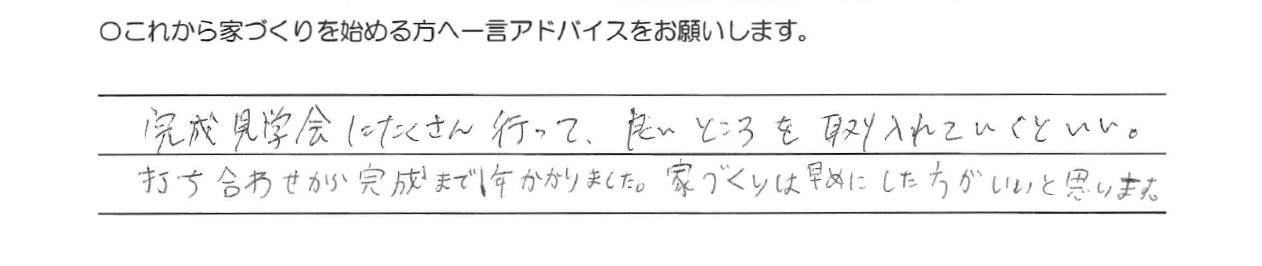 ○これから家づくりを始める方へ一言アドバイスをお願いします。
完成見学会にたくさん行って、良いところを取り入れていくといい。
打ち合わせから完成まで1年かかりました。家づくりは早めにした方がいいと思います。